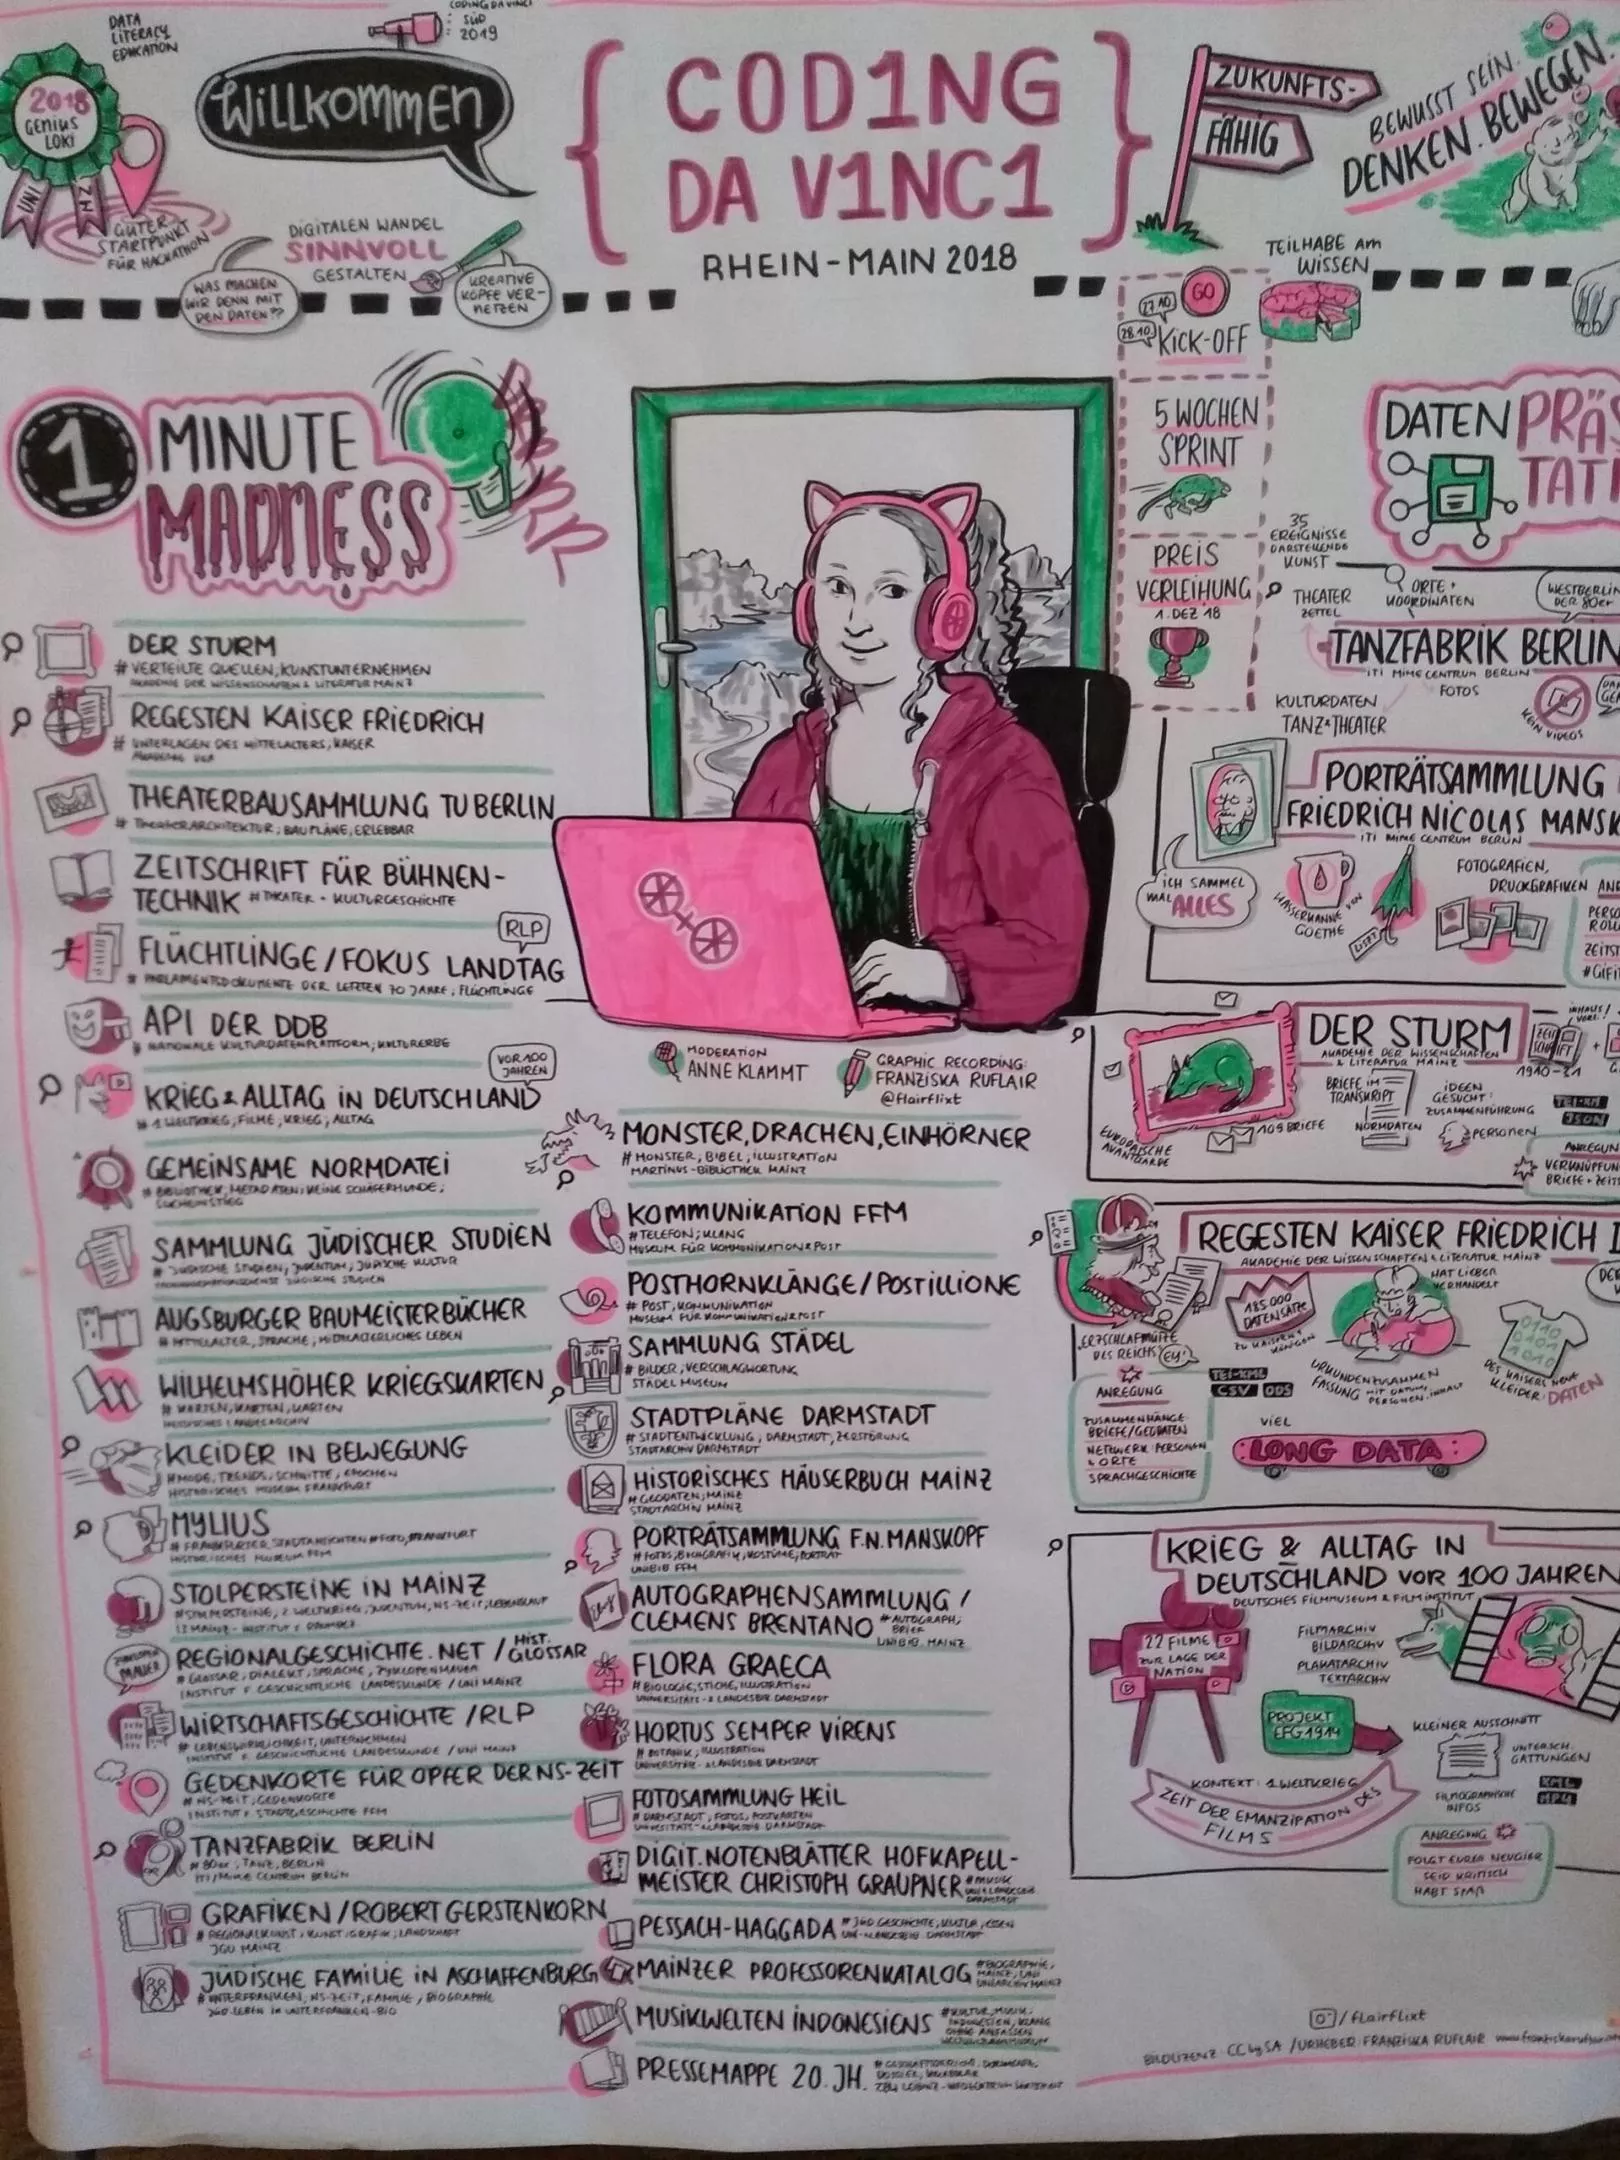 DATA
LITERACY
EDUCATION
CODING DA VINCI
SÜD
2019
2018
GENIUS
LOKI
UNI
GUTER
STARTPUNKT
FÜR HACKATHON
WILLKOMMEN
DIGITALEN WANDEL
SINNVOLL
GESTALTEN
WAS MACHEN
WIR DENN MIT
DEN DATEN??
KREATIVE
KÖPFE VER-
NETZEN
{COD1NG
DA V1NC1}
RHEIN-MAIN 2018
ZUKUNFTS-
FÄHIG
BEWUSST SEIN.
DENKEN. BEWEGEN.
TEILHABE AM
WISSEN
GO
27.10.
28.10.
KICK-OFF
5 WOCHEN
SPRINT
PREIS
VERLEIHUNG
1. DEZ 18
1 MINUTE
MADNESS
DER STURM
# VERTEILTE QUELLEN, KUNSTUNTERNEHMEN
AKADEMIE DER WISSENSCHAFTEN & LITERATUR MAINZ
REGESTEN KAISER FRIEDRICH
# UNTERLAGEN DES MITTELALTERS, KAISER
THEATERBAUSAMMLUNG TU BERLIN
# THEATERARCHITEKTUR, BAUPLÄNE, ERLEBBAR
ZEITSCHRIFT FÜR BÜHNEN-
TECHNIK # THEATER + KULTURGESCHICHTE
RLP
FLÜCHTLINGE/FOKUS LANDTAG
# PARLAMENTSDOKUMENTE DER LETZTEN 70 JAHRE, FLÜCHTLINGE
API DER DDB
# NATIONALE KULTURDATENPLATTFORM, KULTURERBE
VOR 100
JAHREN
KRIEG & ALLTAG IN DEUTSCHLAND
# 1. WELTKRIEG, FILME, KRIEG, ALLTAG
GEMEINSAME NORMDATEI
# BIBLIOTHEK, METADATEN, KEINE SCHÄFERHUNDE,
SAMMLUNG JÜDISCHER STUDIEN
# JÜDISCHE STUDIEN, JUDENTUM, JÜDISCHE KULTUR
AUGSBURGER BAUMEISTERBÜCHER
# MITTELALTER, SPRACHE, MITTELALTERLICHES LEBEN
WILHELMSHÖHER KRIEGSKARTEN
# KARTEN, KARTEN, KARTEN
HESSISCHES LANDESARCHIV
KLEIDER IN BEWEGUNG
# MODE, TRENDS, SCHNITTE, EPOCHEN
HISTORISCHES MUSEUM FRANKFURT
MYLIUS
# FRANKFURTER STADTANSICHTEN # FOTO, FRANKFURT
HISTORISCHES MUSEUM FFM
STOLPERSTEINE IN MAINZ
# STOLPERSTEINE, 2. WELTKRIEG, JUDENTUM, NS-ZEIT, LEBENSLAUF
REGIONALGESCHICHTE.NET / HIST. GLOSSAR
# GLOSSAR, DIALEKT, SPRACHE, ZYKLOPENMAUER
INSTITUT F. GESCHICHTLICHE LANDESKUNDE / UNI MAINZ
WIRTSCHAFTSGESCHICHTE /RLP
# LEBENSWIRKLICHKEIT, UNTERNEHMEN
INSTITUT F. GESCHICHTLICHE LANDESKUNDE / UNI MAINZ
GEDENKORTE FÜR OPFER DER NS-ZEIT
# NS-ZEIT, GEDENKORTE
INSTITUT F. STADTGESCHICHTE FFM
TANZFABRIK BERLIN
# 80er, TANZ, BERLIN
ITI/MIME CENTRUM BERLIN
GRAFIKEN/ROBERT GERSTENKORN
# REGIONALKUNST, KUNST, GRAFIK, LANDSCHAFT
JGU MAINZ
JÜDISCHE FAMILIE IN ASCHAFFENBURG
# UNTERFRANKEN, NS-ZEIT, FAMILIE, BIOGRAPHIE
MODERATION
ANNE KLAMMT
GRAPHIC RECORDING:
FRANZISKA RUFLAIR
@flairflixt
MONSTER, DRACHEN, EINHÖRNER
# MONSTER, BIBEL, ILLUSTRATION
MARTINUS-BIBLIOTHEK MAINZ
KOMMUNIKATION FFM
# TELEFON; KLANG
MUSEUM FÜR KOMMUNIKATION & POST
POSTHORNKLÄNGE/POSTILLIONE
# POST, KOMMUNIKATION
MUSEUM FÜR KOMMUNIKATION & POST
SAMMLUNG STÄDEL
# BILDER, VERSCHLAGWORTUNG
STÄDEL MUSEUM
STADTPLÄNE DARMSTADT
# STADTENTWICKLUNG, DARMSTADT, ZERSTÖRUNG
STADTARCHIV DARMSTADT
HISTORISCHES HÄUSERBUCH MAINZ
# GEODATEN, MAINZ
STADTARCHIV MAINZ
PORTRÄTSAMMLUNG F.N. MANSKOPF
# FOTOS, BIOGRAFIK, KOSTÜME, PORTRÄT
UNIBIB FFM
AUTOGRAPHENSAMMLUNG /
CLEMENS BRENTANO # AUTOGRAPH,
BRIEF
UNIBIB. MAINZ
FLORA GRAECA
# BIOLOGIE, STICHE, ILLUSTRATION
UNIVERSITÄTS- & LANDESBIB. DARMSTADT
HORTUS SEMPER VIRENS
# BOTANIK, ILLUSTRATION
UNIVERSITÄTS- & LANDESBIB DARMSTADT
FOTOSAMMLUNG HEIL
# DARMSTADT, FOTOS, POSTKARTEN
UNIVERSITÄTS- & LANDESBIB. DARMSTADT
DIGIT. NOTENBLÄTTER HOFKAPELL-
MEISTER CHRISTOPH GRAUPNER # MUSIK
PESSACH-HAGGADA # JÜD GESCHICHTE, KULTUR, ESSEN
MAINZER PROFESSORENKATALOG # BIOGRAPHIE,
MAINZ, UNI
UNIARCHIV MAINZ
MUSIKWELTEN INDONESIENS # KULTUR, MUSIK,
INDONESIEN, KLANG
PRESSEMAPPE 20. JH.
DATENPRÄS
TATI
35
EREIGNISSE
DARSTELLENDE
KUNST
THEATER
ZETTEL
ORTE +
KOORDINATEN
WESTBERLIN
DER 80er
TANZFABRIK BERLIN
ITI MIME CENTRUM BERLIN
FOTOS
KULTURDATEN
TANZ & THEATER
KEIN VIDEOS
PORTRÄTSAMMLUNG
FRIEDRICH NICOLAS MANSK
ITI MIME CENTRUM BERLIN
ICH SAMMEL
MAL ALLES
WASSERKANNE VON
GOETHE
LISZT
FOTOGRAFIEN,
DRUCKGRAFIKEN
DER STURM
AKADEMIE DER WISSENSCHAFTEN
& LITERATUR MAINZ
ZEIT
SCHRIFT
1910-21
EUROPÄISCHE
AVANTGARDE
109 BRIEFE
BRIEFE IM
TRANSKRIPT
NORMDATEN
IDEEN
GESUCHT:
ZUSAMMENFÜHRUNG
PERSONEN
JSON
ANREGUN
VERKNÜPFUN
BRIEFE + ZEITS
REGESTEN KAISER FRIEDRICH I
AKADEMIE DER WISSENSCHAFTEN & LITERATUR MAINZ
185.000
DATENSÄTZE
ZU KAISERN &
KÖNIGEN
HAT LIEBER
VERHANDELT
„ERZSCHLAFMÜTZE
DES REICHS“
EY!
TEI-XML
CSV / ODS
URKUNDENZUSAMMEN
FASSUNG MIT DATUM,
PERSONEN, INHALT
0110
0101
1010
DES KAISERS NEUE
KLEIDER: DATEN
ANREGUNG
ZUSAMMENHÄNGE
BRIEFE/GEODATEN
NETZWERK: PERSONEN
& ORTE
SPRACHGESCHICHTE
VIEL
LONG DATA
KRIEG & ALLTAG IN
DEUTSCHLAND VOR 100 JAHREN
DEUTSCHES FILMMUSEUM & FILMINSTITUT
22 FILME
ZUR LAGE DER
NATION
FILMARCHIV
BILDARCHIV
PLAKATARCHIV
TEXTARCHIV
PROJEKT
EFG1914
KLEINER AUSSCHNITT
UNTERSCH.
GATTUNGEN
FILMOGRAPHISCHE
INFOS
XML
MP4
KONTEXT: 1. WELTKRIEG
ZEIT DER EMANZIPATION DES
FILMS
ANREGUNG
FOLGT EURER NEUGIER
SEID KRITISCH
HABT SPAß
/flairflixt
BILDLIZENZ: CC by SA / URHEBER FRANZISKA RUFLAIR